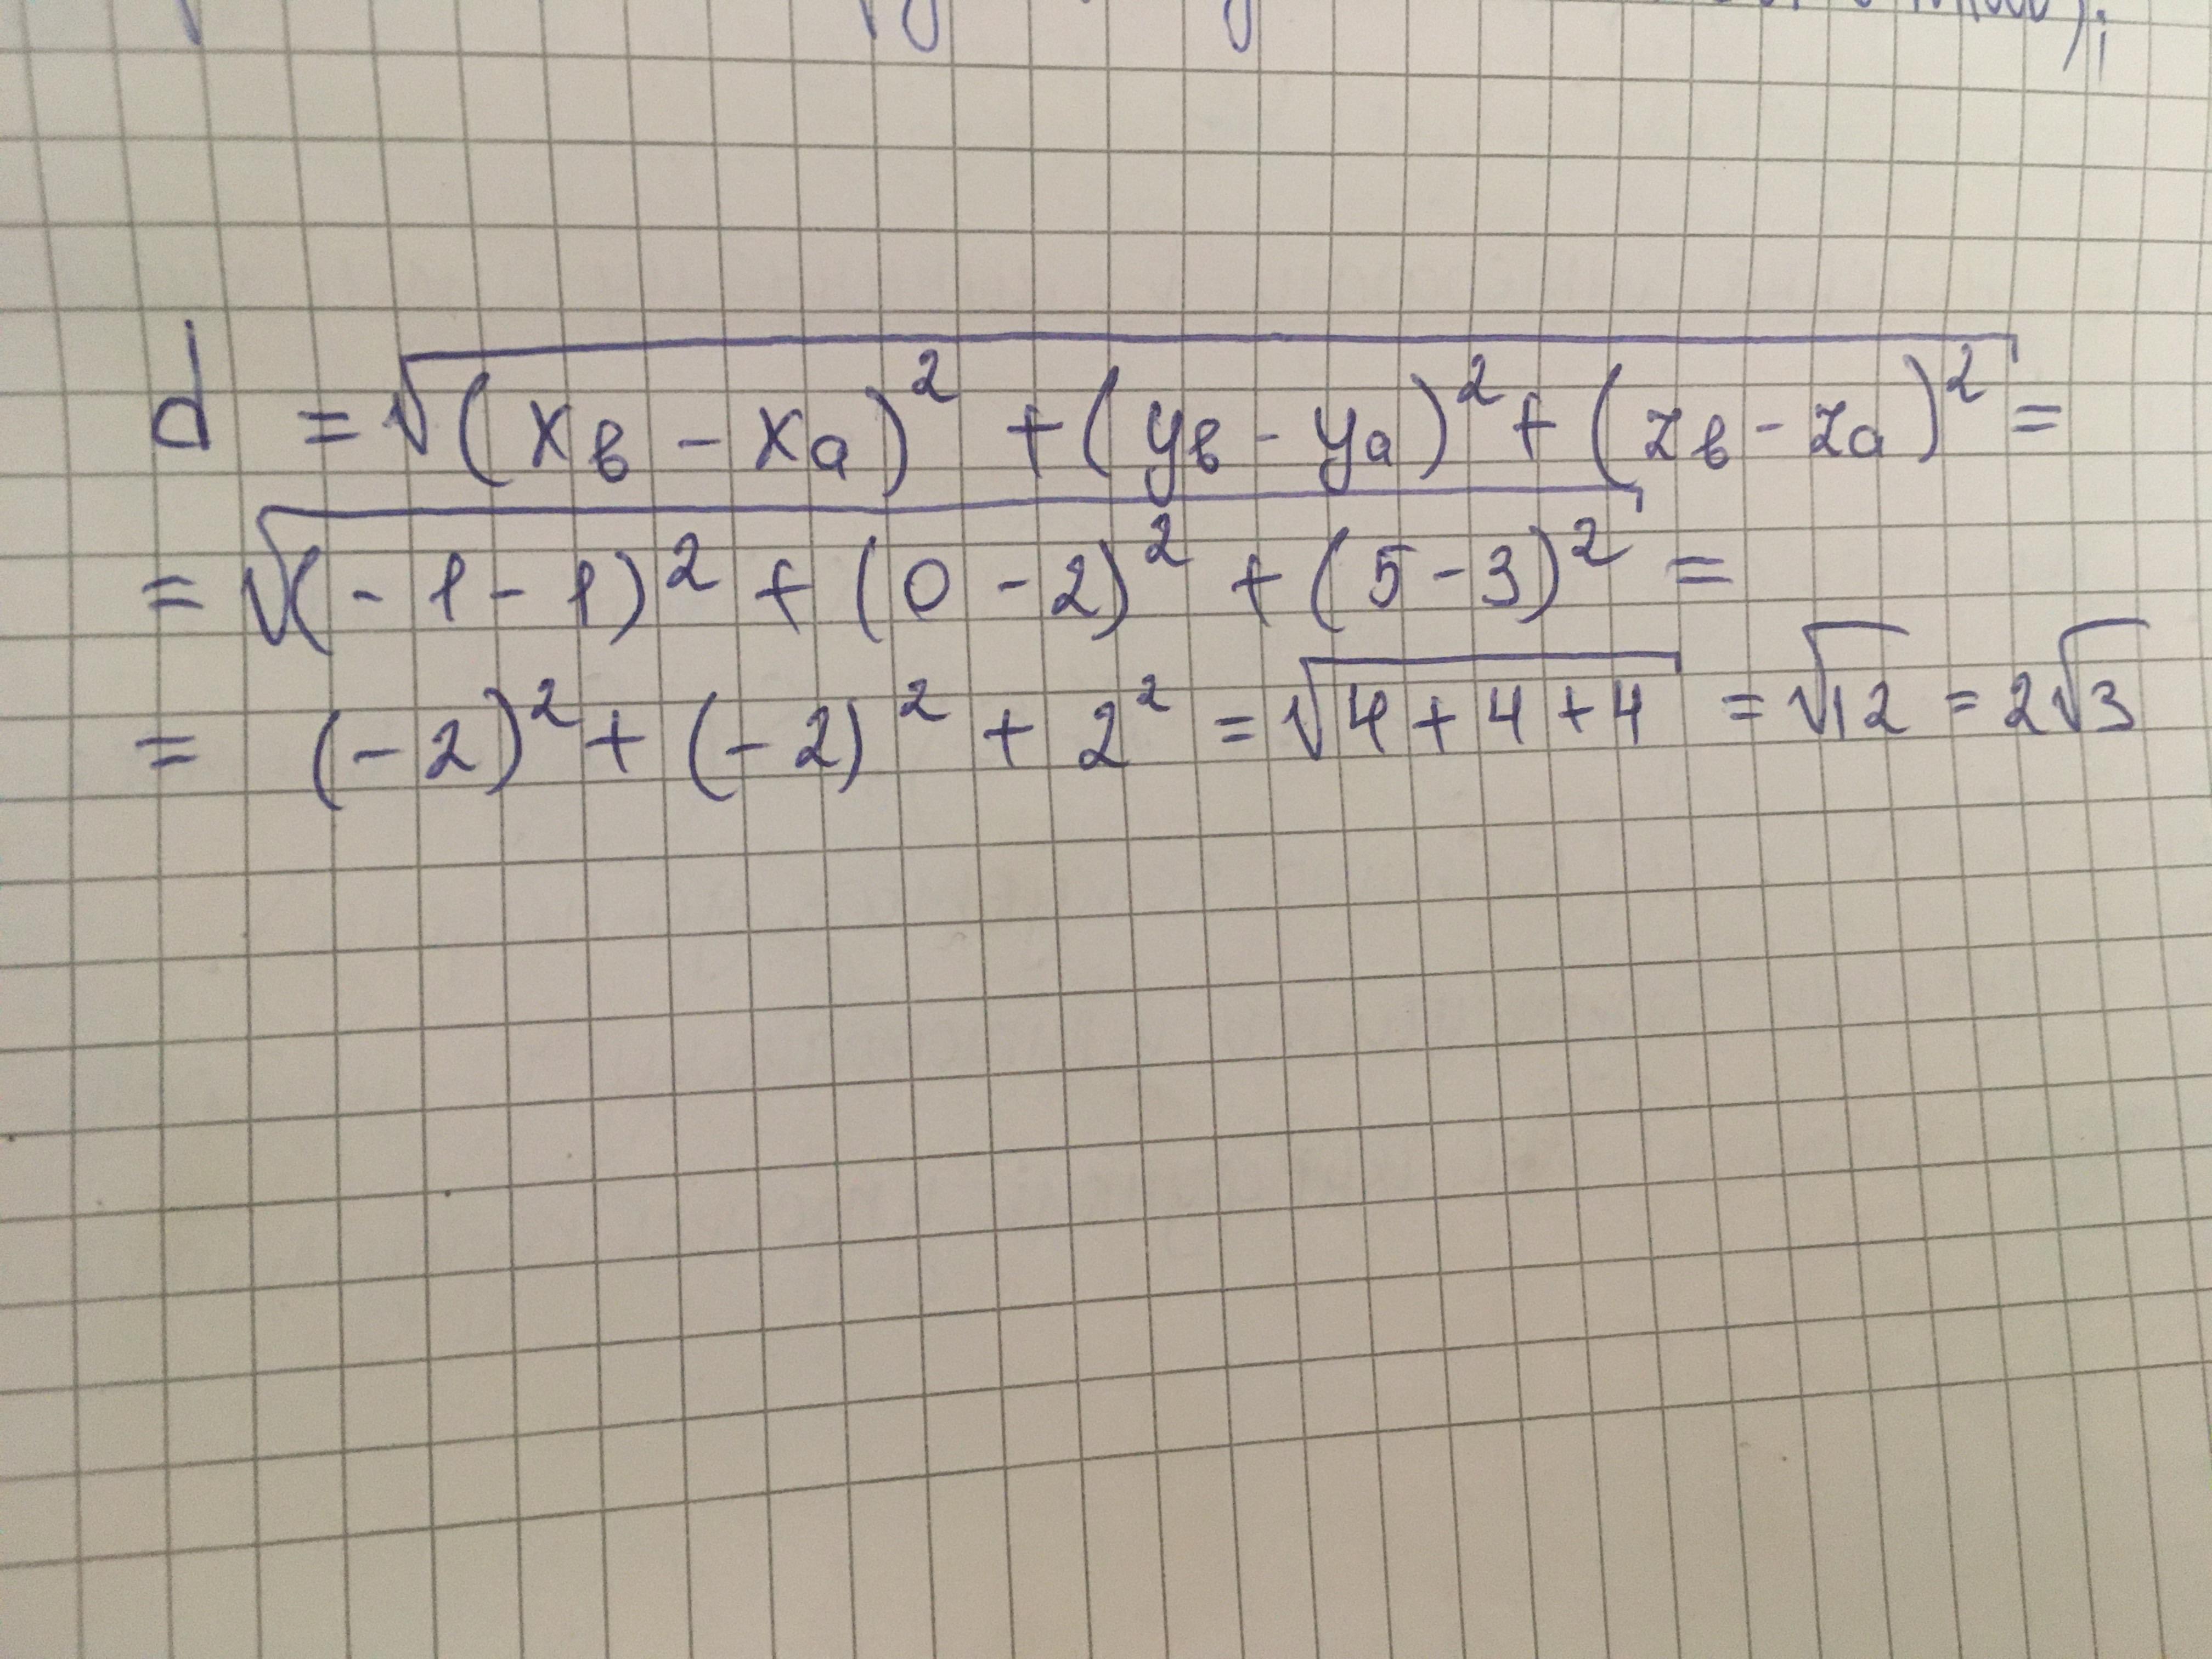 d = √(x_b - x_a)² + (y_b - y_a)² + (z_b - z_a)² =
= √(-1-1)² + (0-2)² + (5-3)² =
= (-2)² + (-2)² + 2² = √4+4+4 = √12 = 2√3